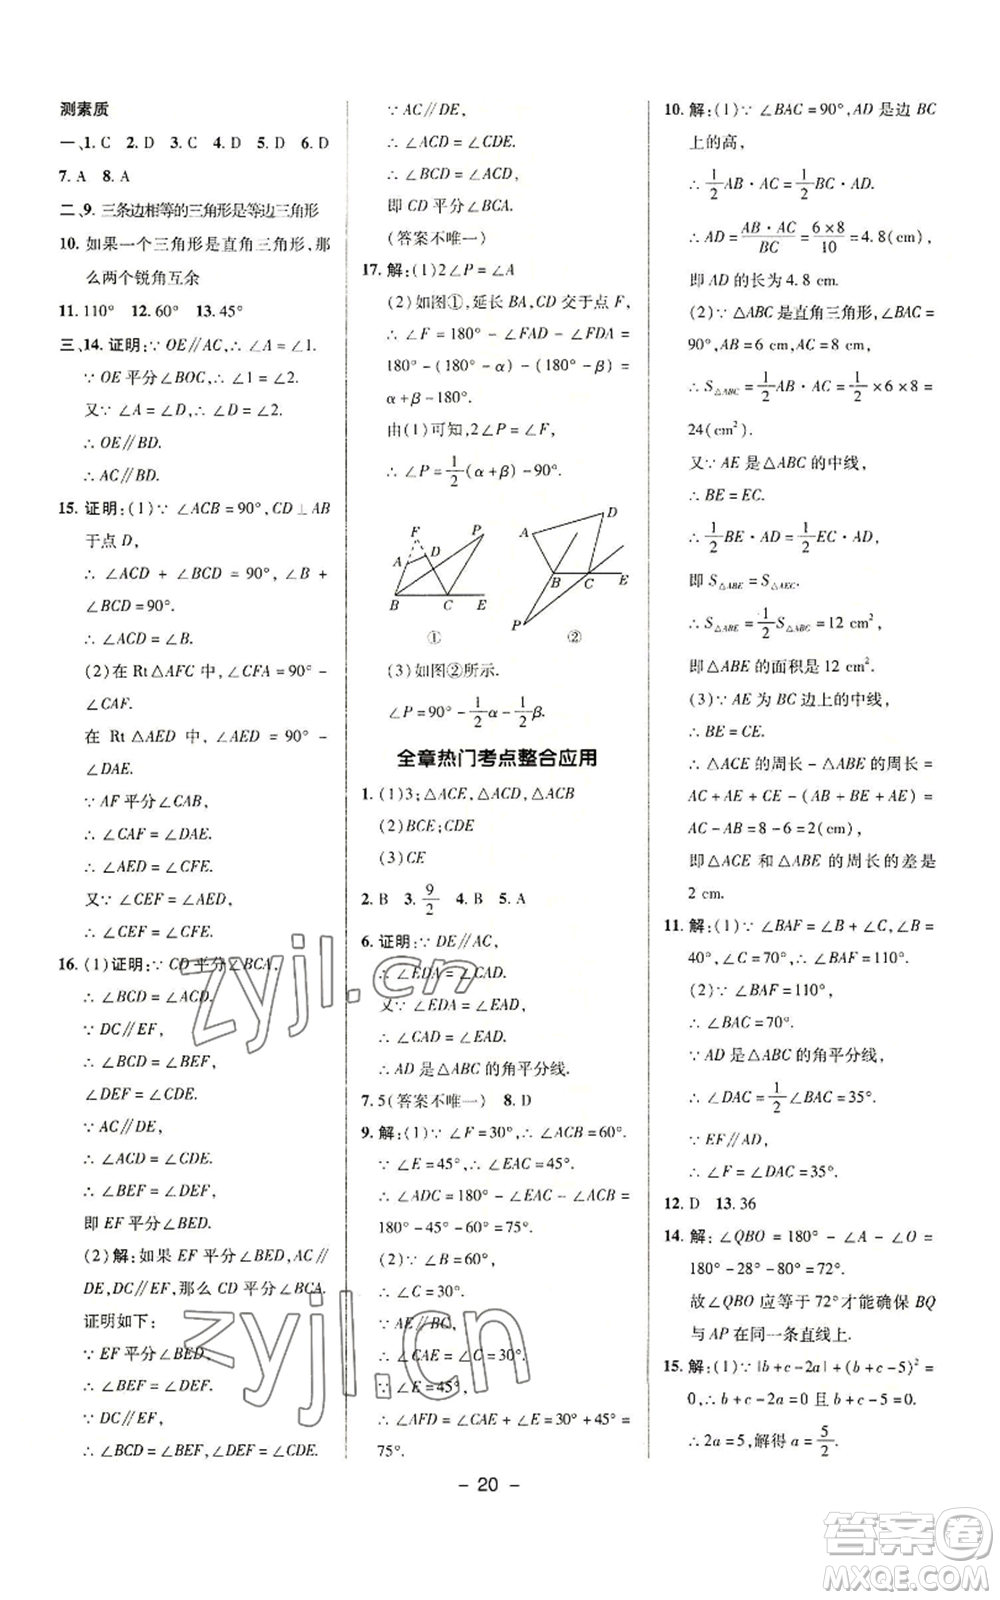 测素质
一、1. C  2. D  3. C  4. D  5. D  6. D
7. A  8. A
二、9. 三条边相等的三角形是等边三角形
10. 如果一个三角形是直角三角形,那
么两个锐角互余
11. 110°  12. 60°  13. 45°
三、14. 证明:∵ OE∥AC,∴ ∠A = ∠1.
∵ OE 平分∠BOC,∴ ∠1 = ∠2.
又∵ ∠A = ∠D,∴ ∠D = ∠2.
∴ OE∥BD.
∴ AC∥BD.
15. 证明:(1)∵ ∠ACB = 90°,CD⊥AB
于点 D,
∴ ∠ACD + ∠BCD = 90°, ∠B +
∠BCD = 90°.
∴ ∠ACD = ∠B.
(2)在 Rt△AFC 中,∠CFA = 90° -
∠CAF.
在 Rt △AED 中, ∠AED = 90° -
∠DAE.
∵ AF 平分∠CAB,
∴ ∠CAF = ∠DAE.
∴ ∠AED = ∠CFE.
又∵ ∠CEF = ∠AED,
∴ ∠CEF = ∠CFE.
16. (1)证明:∵ CD 平分∠BCA,
∴ ∠BCD = ∠ACD.
∵ DC∥EF,
∴ ∠BCD = ∠BEF,
∠DEF = ∠CDE.
∵ AC∥DE,
∴ ∠ACD = ∠CDE.
∴ ∠BEF = ∠DEF,
即 EF 平分∠BED.
(2)解:如果 EF 平分∠BED,AC∥
DE,DC∥EF,那么 CD 平分∠BCA.
证明如下:
∵ EF 平分∠BED,
∴ ∠BEF = ∠DEF.
∵ DC∥EF,
∴ ∠BCD = ∠BEF, ∠DEF = ∠CDE.
∵ AC∥DE,
∴ ∠ACD = ∠CDE.
∴ ∠BCD = ∠ACD,
即 CD 平分∠BCA.
(答案不唯一)
17. 解:(1)2∠P = ∠A
(2)如图①,延长 BA,CD 交于点 F,
∴ ∠F = 180° - ∠FAD - ∠FDA =
180° - (180° - α) - (180° - β) =
α + β - 180°.
由(1)可知,2∠P = ∠F,
∴ ∠P = 1/2(α + β) - 90°.
F
A
D
P
B
C
E
①
A
D
B
C
E
P
②
(3)如图②所示.
∠P = 90° - 1/2α - 1/2β.
全章热门考点整合应用
1. (1)3;△ACE,△ACD,△ACB
(2)BCE;CDE
(3)CE
2. B  3. 9/2  4. B  5. A
6. 证明:∵ DE∥AC,
∴ ∠EDA = ∠CAD.
又∵ ∠EDA = ∠EAD,
∴ ∠CAD = ∠EAD.
∴ AD 是△ABC 的角平分线.
7. 5(答案不唯一)  8. D
9. 解:(1)∵ ∠F = 30°,∴ ∠ACB = 60°.
∵ ∠E = 45°,∴ ∠EAC = 45°.
∴ ∠ADC = 180° - ∠EAC - ∠ACB =
180° - 45° - 60° = 75°.
(2)∵ ∠ACB = 60°,
∴ ∠C = 30°.
∵ AE∥BC,
∴ ∠CAE = ∠C = 30°.
∵ ∠E = 45°,
∴ ∠AFD = ∠CAE + ∠E = 30° + 45° =
75°.
10. 解:(1)∵ ∠BAC = 90°,AD 是边 BC
上的高,
∴ 1/2AB · AC = 1/2BC · AD.
∴ AD = AB · AC/BC = 6 × 8/10 = 4. 8(cm),
即 AD 的长为 4. 8 cm.
(2)∵ △ABC 是直角三角形,∠BAC =
90°,AB = 6 cm,AC = 8 cm,
∴ S△ABC = 1/2AB · AC = 1/2 × 6 × 8 =
24(cm²).
又∵ AE 是△ABC 的中线,
∴ BE = EC.
∴ 1/2BE · AD = 1/2EC · AD,
即 S△ABE = S△AEC.
∴ S△ABE = 1/2S△ABC = 12 cm²,
即△ABE 的面积是 12 cm².
(3)∵ AE 为 BC 边上的中线,
∴ BE = CE.
∴ △ACE 的周长 - △ABE 的周长 =
AC + AE + CE - (AB + BE + AE) =
AC - AB = 8 - 6 = 2(cm),
即△ACE 和△ABE 的周长的差是
2 cm.
11. 解:(1)∵ ∠BAF = ∠B + ∠C,∠B =
40°,∠C = 70°,∴ ∠BAF = 110°.
(2)∵ ∠BAF = 110°,
∴ ∠BAC = 70°.
∵ AD 是△ABC 的角平分线,
∴ ∠DAC = 1/2∠BAC = 35°.
∵ EF∥AD,
∴ ∠F = ∠DAC = 35°.
12. D  13. 36
14. 解: ∠QBO = 180° - ∠A - ∠O =
180° - 28° - 80° = 72°.
故∠QBO 应等于 72°才能确保 BQ
与 AP 在同一条直线上.
15. 解:(1)∵ |b + c - 2a| + (b + c - 5)² =
0,∴ b + c - 2a = 0 且 b + c - 5 = 0.
∴ 2a = 5,解得 a = 5/2.
- 20 -
zyjl.cn
zyjl.cn
答案卷
MXQE.COM